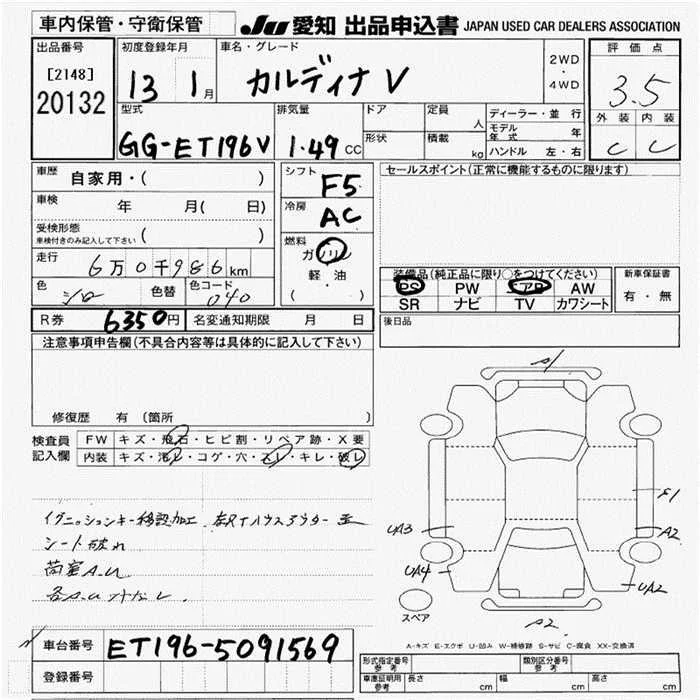 車内保管・守衛保管 JU 愛知 出品申込書 JAPAN USED CAR DEALERS ASSOCIATION
出品番号 初度登録年月 車名・グレード 2WD・4WD 評価点
[2148] 20132 13 1月 カルディナ V 3.5
型式 排気量 ドア 定員 人 ディーラー・並行 外装 内装
GG-ET196V 1.49 CC 形状 積載 kg モデル年式 年 C C
ハンドル 左・右
車歴 自家用・( ) シフト F5 セールスポイント(正常に機能するものに限ります)
車検 年 月( 日) 冷房 AC
受検形態 車検付きのみ記入して下さい ( )
走行 6万0千986km 燃料 ガソリン 軽油 ( ・ )
色 シロ 色替 色コード 040
装備品(純正品に限り○をつけてください) 新車保証書
PS PW エアB AW 有・無
SR ナビ TV カワシート
R券 6350円 名変通知期限 月 日 後日品
注意事項申告欄(不具合内容等は具体的に記入して下さい)
修復歴 有 (箇所 )
検査員記入欄 FW キズ・飛石・ヒビ割・リペア跡・X要
内装 キズ・汚レ・コゲ・穴・スレ・キレ・破レ
A1
E1
UA3 A2
UA4 UA2
スペア A2
イグニッションキー移設加工
シート破れ
荷室A.U
A-キズ E-エクボ U-凹み W-補修跡 S-サビ C-腐食 XX-交換済
車台番号 ET196-5091569
登録番号
形式指定番号 参考 類別区分番号 参考
車庫証明用 参考 長さ cm 幅 cm 高さ cm